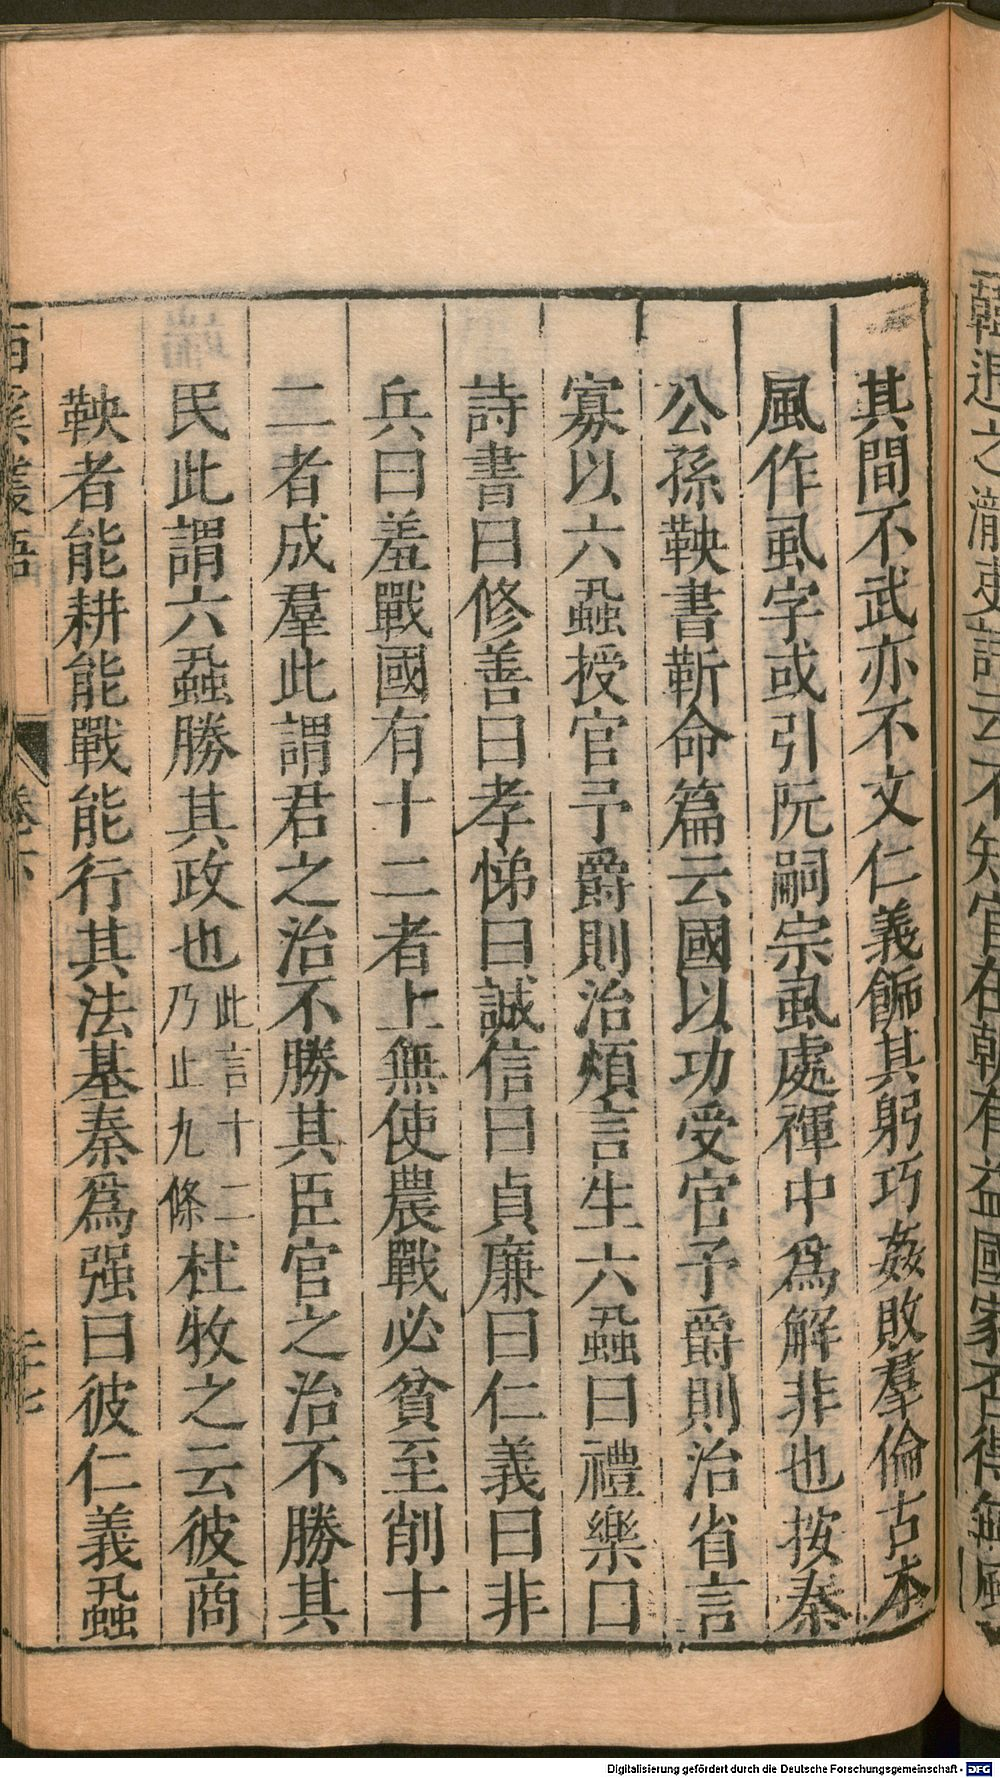 韓退之瀧吏詩云不知官在朝有益國家否得無風
其間不武亦不文仁義飾其躬巧姦敗羣倫古本
風作虱字或引阮嗣宗虱處褌中爲解非也按秦
公孫鞅書靳命篇云國以功受官予爵則治省言
寡以六蝨授官予爵則治煩言生六蝨曰禮樂曰
詩書曰修善曰孝悌曰誠信曰貞廉曰仁義曰非
兵曰羞戰國有十二者上無使農戰必貧至削十
二者成羣此謂君之治不勝其臣官之治不勝其
民此謂六蝨勝其政也此言十二乃止九條杜牧之云彼商
鞅者能耕能戰能行其法基秦爲强曰彼仁義蝨
西溪叢語 卷六
Digitalisierung gefördert durch die Deutsche Forschungsgemeinschaft - DFG